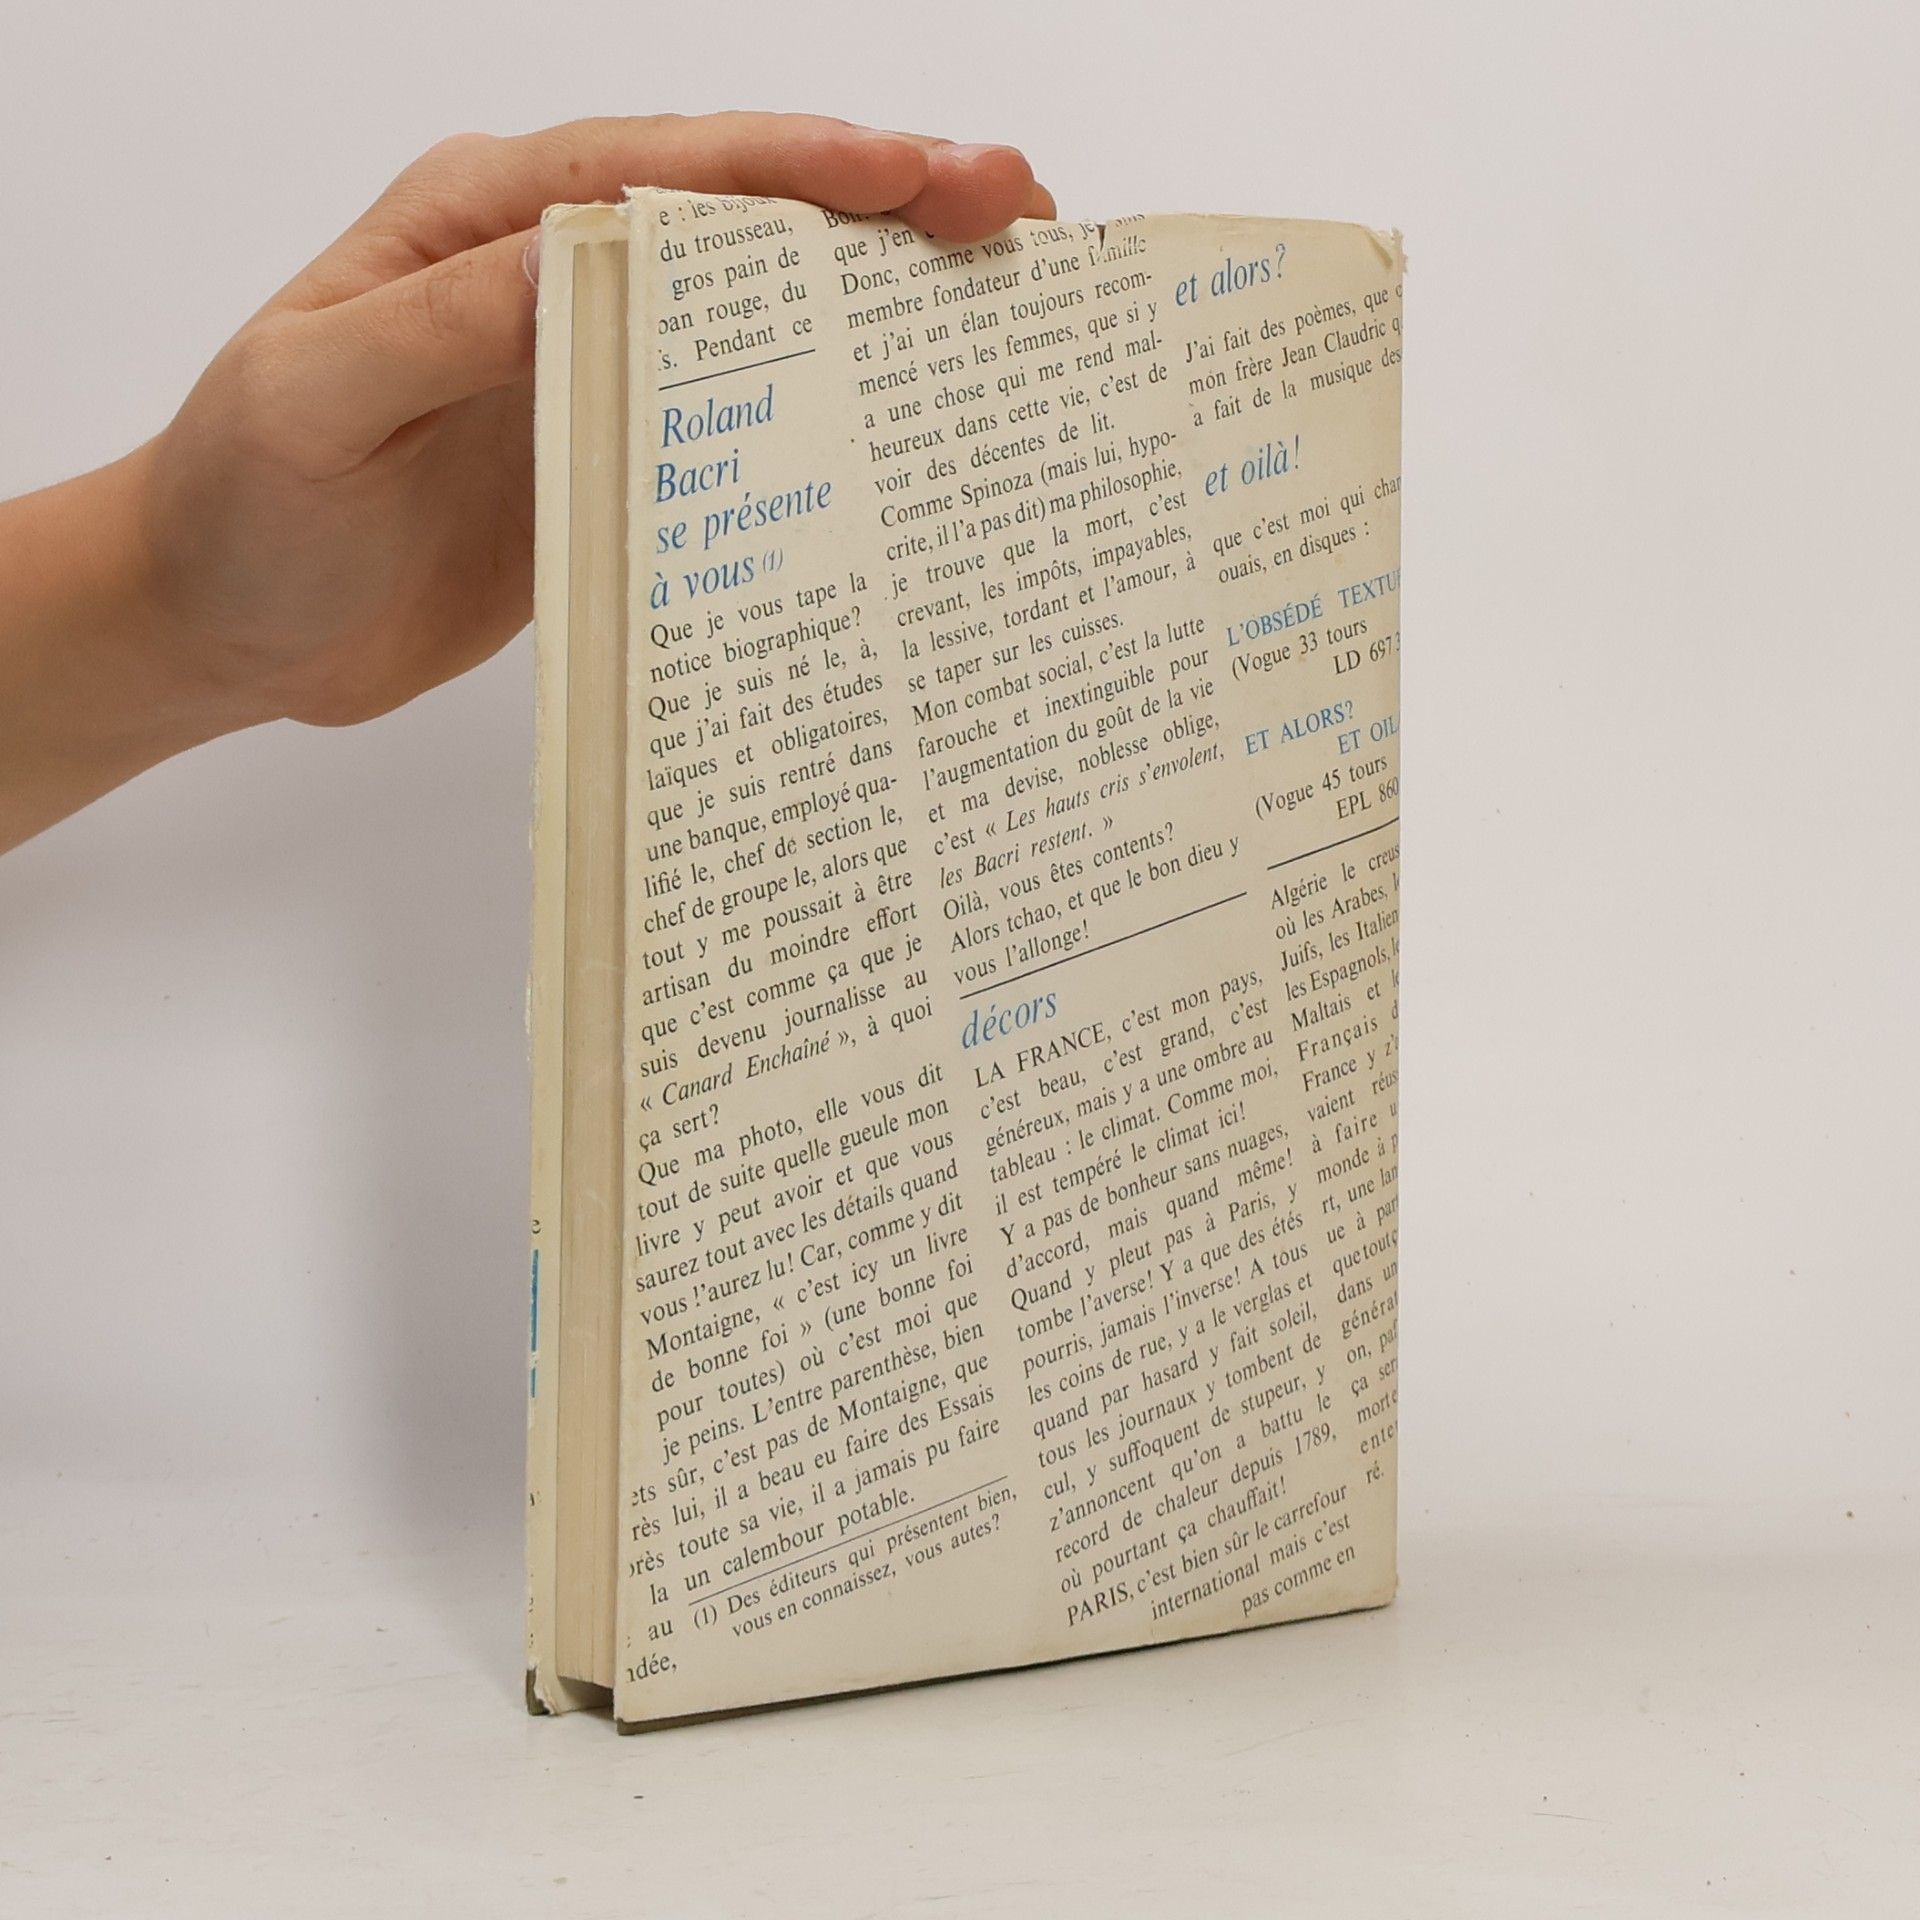 e : les bijoux
du trousseau,
gros pain de
pan rouge, du
s. Pendant ce
Roland
Bacri
se présente
à vous (1)
Que je vous tape la
notice biographique?
Que je suis né le, à,
que j'ai fait des études
laïques et obligatoires,
que je suis rentré dans
une banque, employé qua-
lifié le, chef de section le,
chef de groupe le, alors que
tout y me poussait à être
artisan du moindre effort
que c'est comme ça que je
suis devenu journalisse au
« Canard Enchaîné », à quoi
ça sert?
Que ma photo, elle vous dit
tout de suite quelle gueule mon
livre y peut avoir et que vous
saurez tout avec les détails quand
vous l'aurez lu! Car, comme y dit
Montaigne, « c'est icy un livre
de bonne foi » (une bonne foi
pour toutes) où c'est moi que
je peins. L'entre parenthèse, bien
sûr, c'est pas de Montaigne, que
lui, il a beau eu faire des Essais
toute sa vie, il a jamais pu faire
un calembour potable.
(1) Des éditeurs qui présentent bien,
vous en connaissez, vous autes?
ets
rès
près
la
au
ndée,
que j'en
Donc, comme vous tous, je suis
membre fondateur d'une famille
et j'ai un élan toujours recom-
mencé vers les femmes, que si y
a une chose qui me rend mal-
heureux dans cette vie, c'est de
voir des décentes de lit.
Comme Spinoza (mais lui, hypo-
crite, il l'a pas dit) ma philosophie,
je trouve que la mort, c'est
crevant, les impôts, impayables,
la lessive, tordant et l'amour, à
se taper sur les cuisses.
Mon combat social, c'est la lutte
farouche et inextinguible pour
l'augmentation du goût de la vie
et ma devise, noblesse oblige,
c'est « Les hauts cris s'envolent,
les Bacri restent. »
Oilà, vous êtes contents?
Alors tchao, et que le bon dieu y
vous l'allonge!
décors
LA FRANCE, c'est mon pays,
c'est beau, c'est grand, c'est
généreux, mais y a une ombre au
tableau : le climat. Comme moi,
il est tempéré le climat ici!
Y a pas de bonheur sans nuages,
d'accord, mais quand même!
Quand y pleut pas à Paris, y
tombe l'averse! Y a que des étés
pourris, jamais l'inverse! A tous
les coins de rue, y a le verglas et
quand par hasard y fait soleil,
tous les journaux y tombent de
cul, y suffoquent de stupeur, y
z'annoncent qu'on a battu le
record de chaleur depuis 1789,
où pourtant ça chauffait!
PARIS, c'est bien sûr le carrefour
international mais c'est
pas comme en
et alors?
J'ai fait des poèmes, que
mon frère Jean Claudric
a fait de la musique des
et oilà!
que c'est moi qui
ouais, en disques :
L'OBSÉDÉ
(Vogue 33 tours
LD
ET ALORS?
ET
(Vogue 45 tours
EPL
Algérie le
où les Arabes,
Juifs, les
les Espagnols,
Maltais et
Français
France y
vaient
à faire
monde à
rt, une
ue à
que tout
dans
on,
ça
ré.